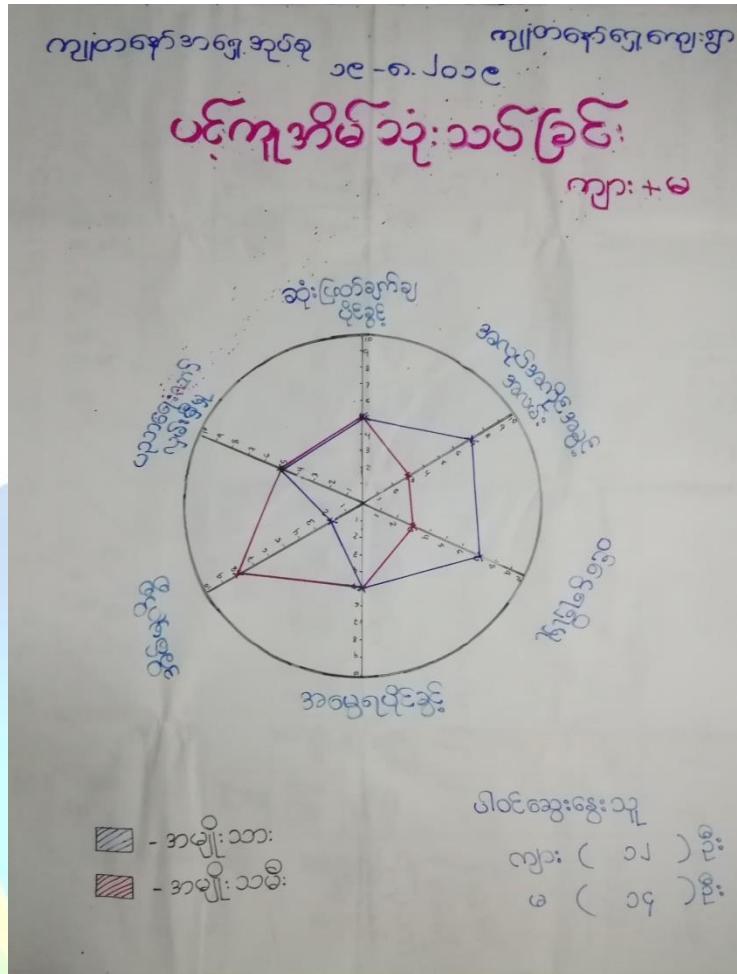 ကျုံတနော်အရှေ့အုပ်စု
ကျုံတနော်ရှေ့ကျေးရွာ
၁၉-၈.၂၀၁၉
ပင့်ကူအိမ်သုံးသပ်ခြင်း
ကျား+မ
ဆုံးဖြတ်ချက်ချ
ပိုင်ခွင့်
အလုပ်အကိုင်အခွင့်
အလမ်း
ပညာရေးလက်
လှမ်းမီမှု
အမွေရပိုင်ခွင့်
- အမျိုးသား
- အမျိုးသမီး
ပါဝင်ဆွေးနွေးသူ
ကျား ( ၁၂ ) ဦး
မ ( ၁၄ ) ဦး